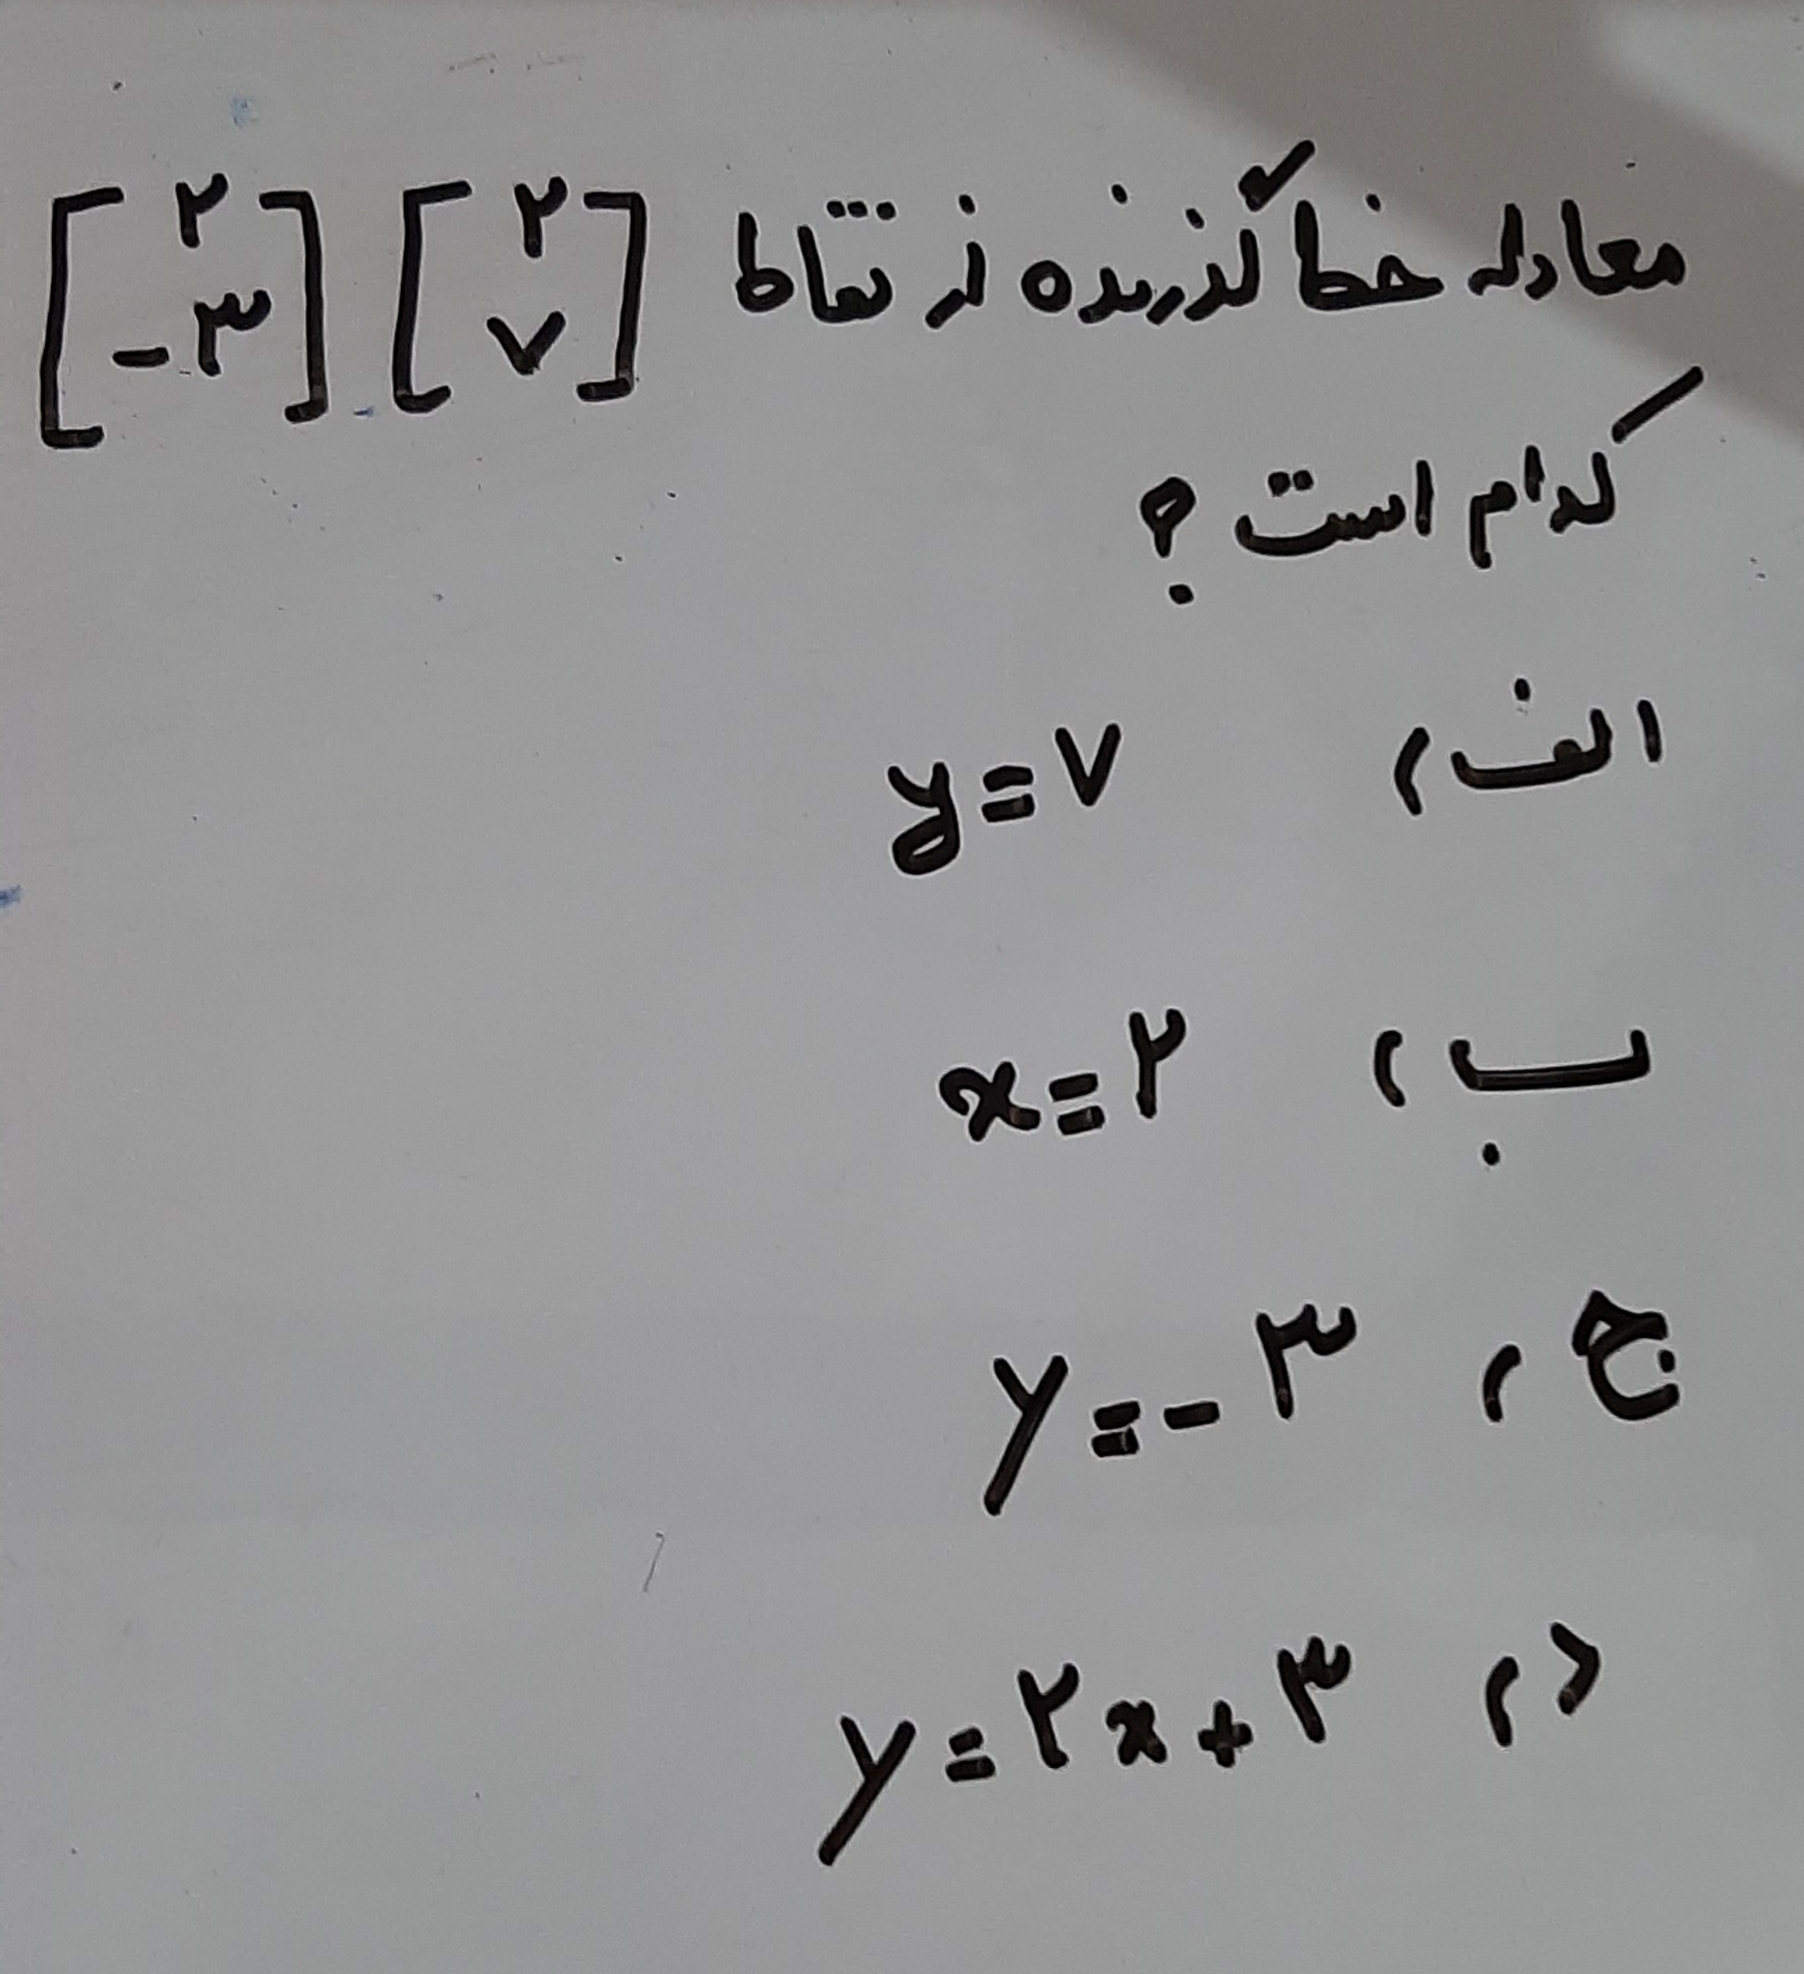 معادله خط گذرنده از نقاط [۲ ۷] [۲ -۳]
کدام است ؟
الف) y=۷
ب) x=۲
ج) y=-۳
د) y=۲x+۳